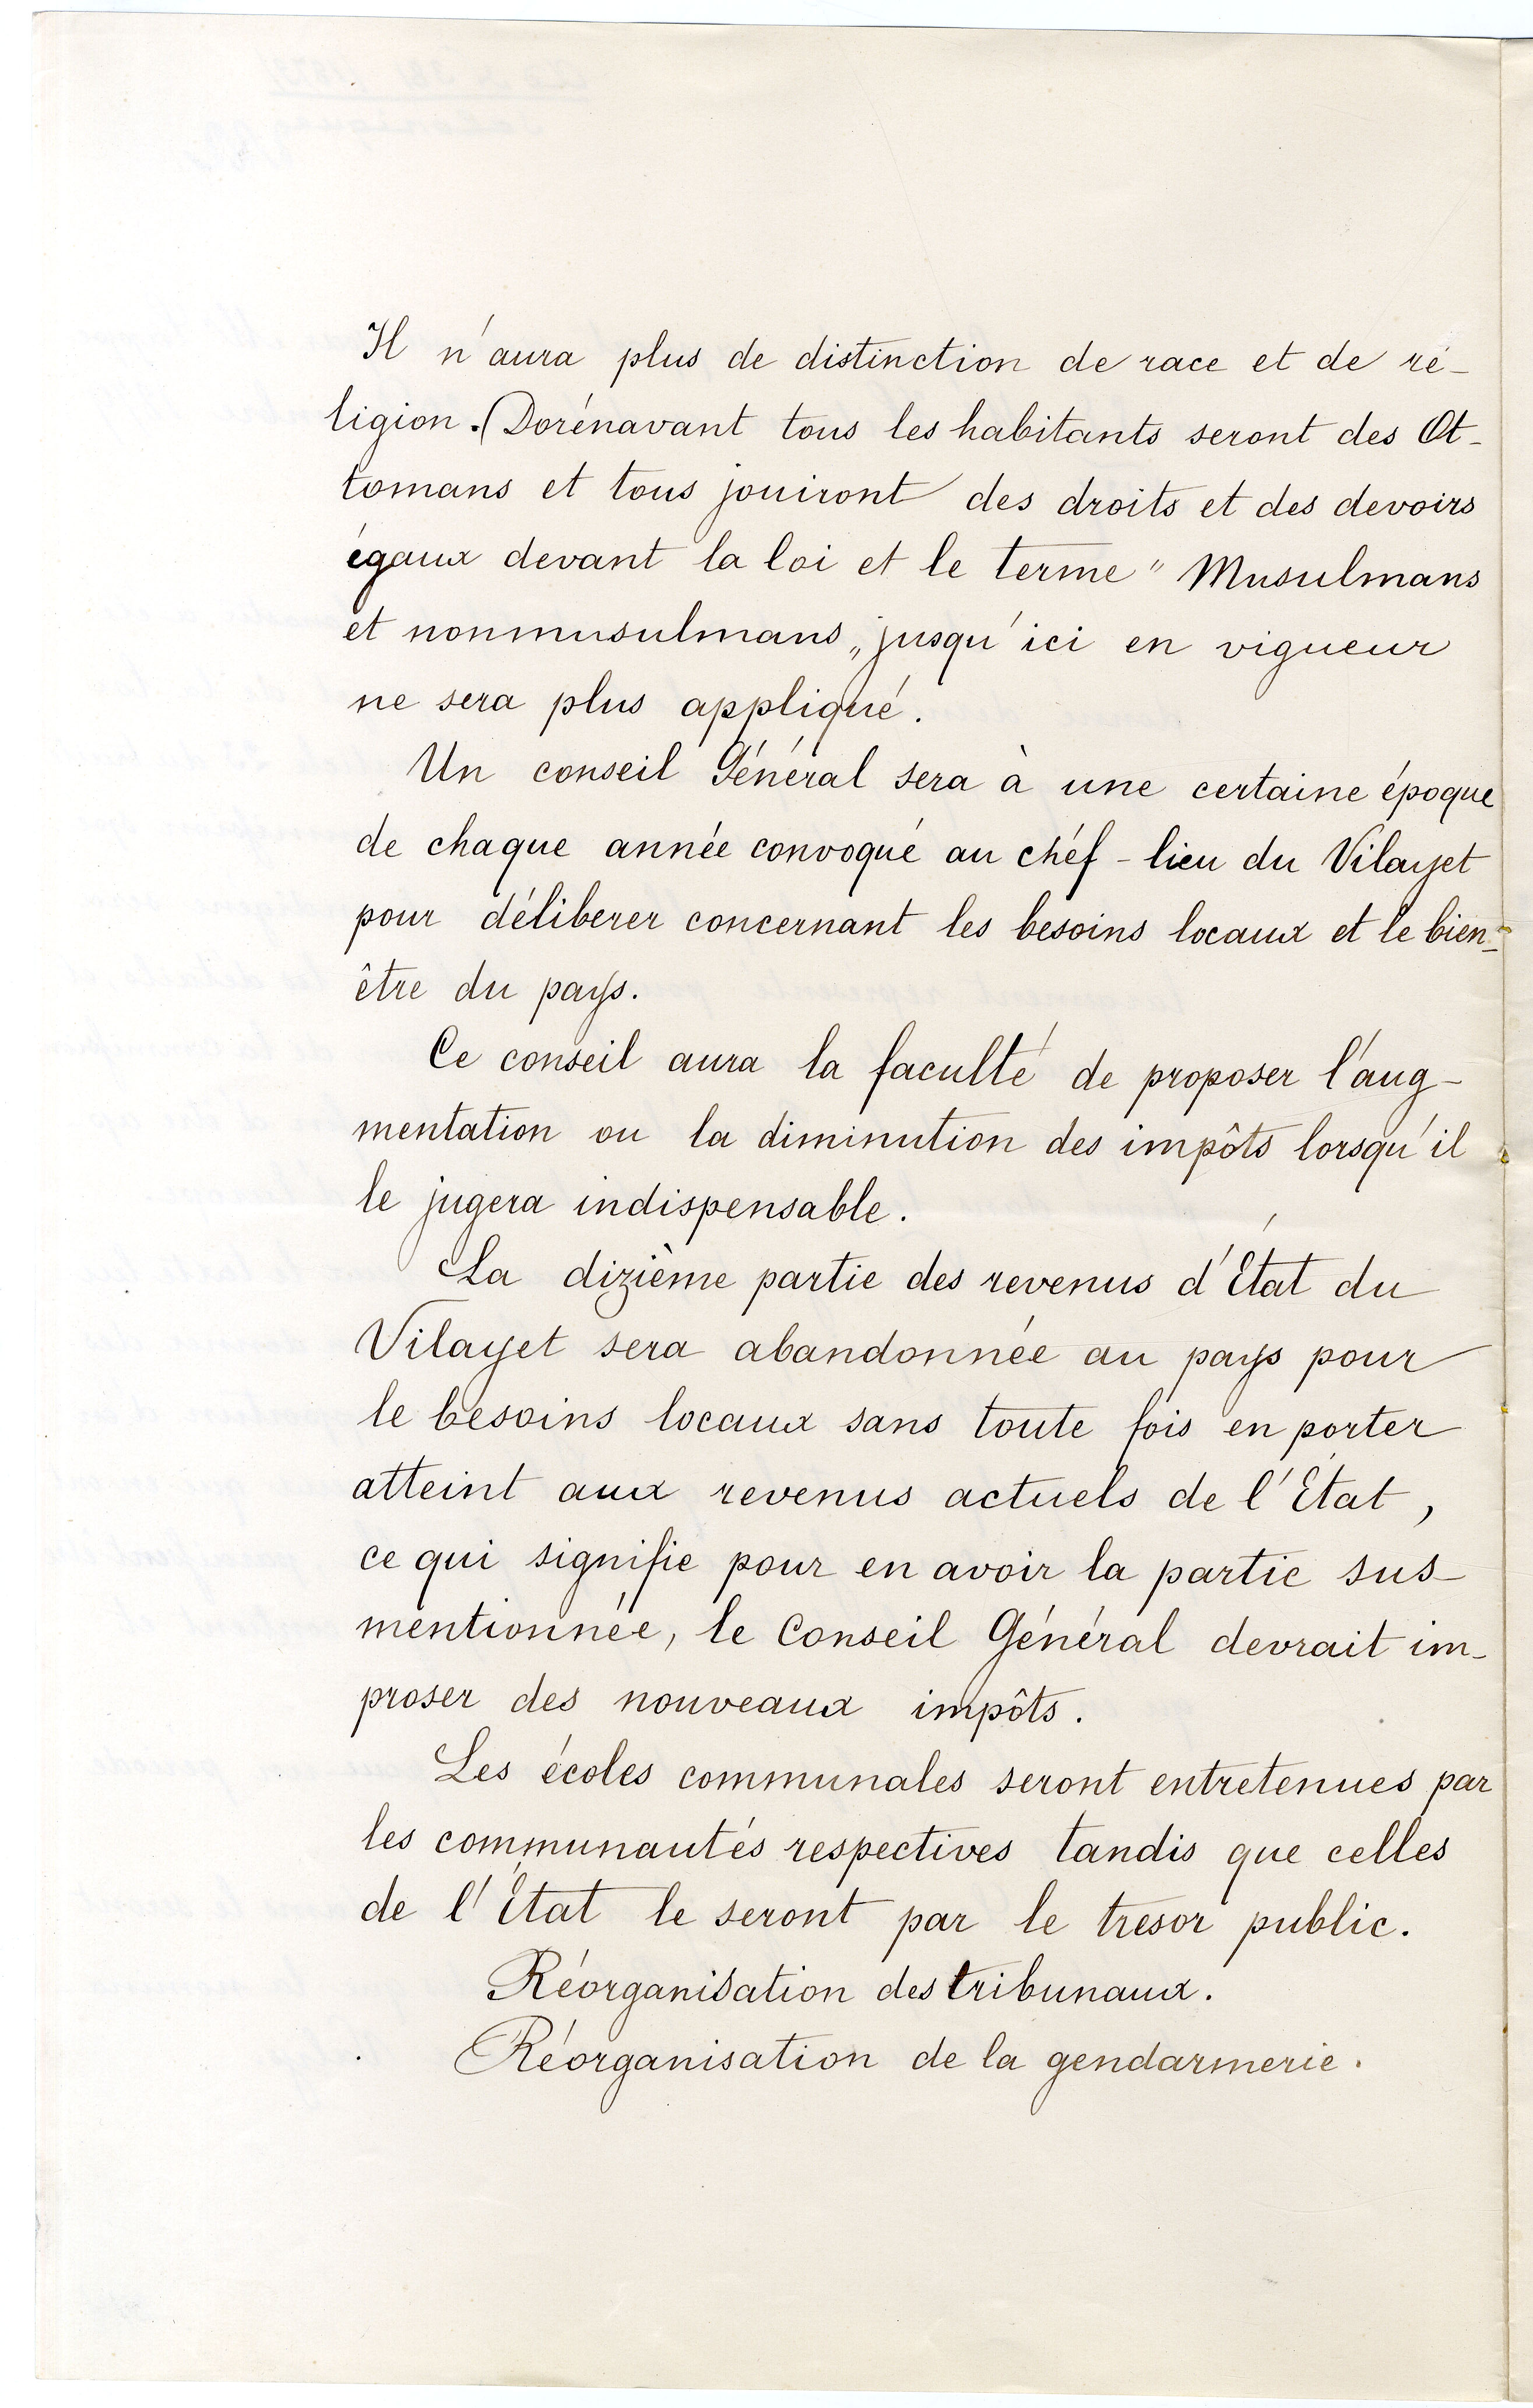 Il n'aura plus de distinction de race et de ré-
ligion. Dorénavant tous les habitants seront des Ot-
tomans et tous jouiront des droits et des devoirs
égaux devant la loi et le terme " Musulmans
et nonmusulmans „ jusqu'ici en vigueur
ne sera plus appliqué.
Un conseil Général sera à une certaine époque
de chaque année convoqué au chéf-lieu du Vilayet
pour déliberer concernant les besoins locaux et le bien-
être du pays.
Ce conseil aura la faculté de proposer l'aug-
mentation ou la diminution des impôts lorsqu'il
le jugera indispensable.
La dizième partie des revenus d'État du
Vilayet sera abandonnée au pays pour
le besoins locaux sans toute fois en porter
atteint aux revenus actuels de l'État,
ce qui signifie pour en avoir la partie sus-
mentionnée, le Conseil Général devrait im-
proser des nouveaux impôts.
Les écoles communales seront entretenues par
les communautés respectives tandis que celles
de l'État le seront par le tresor public.
Réorganisation des tribunaux.
Réorganisation de la gendarmerie.